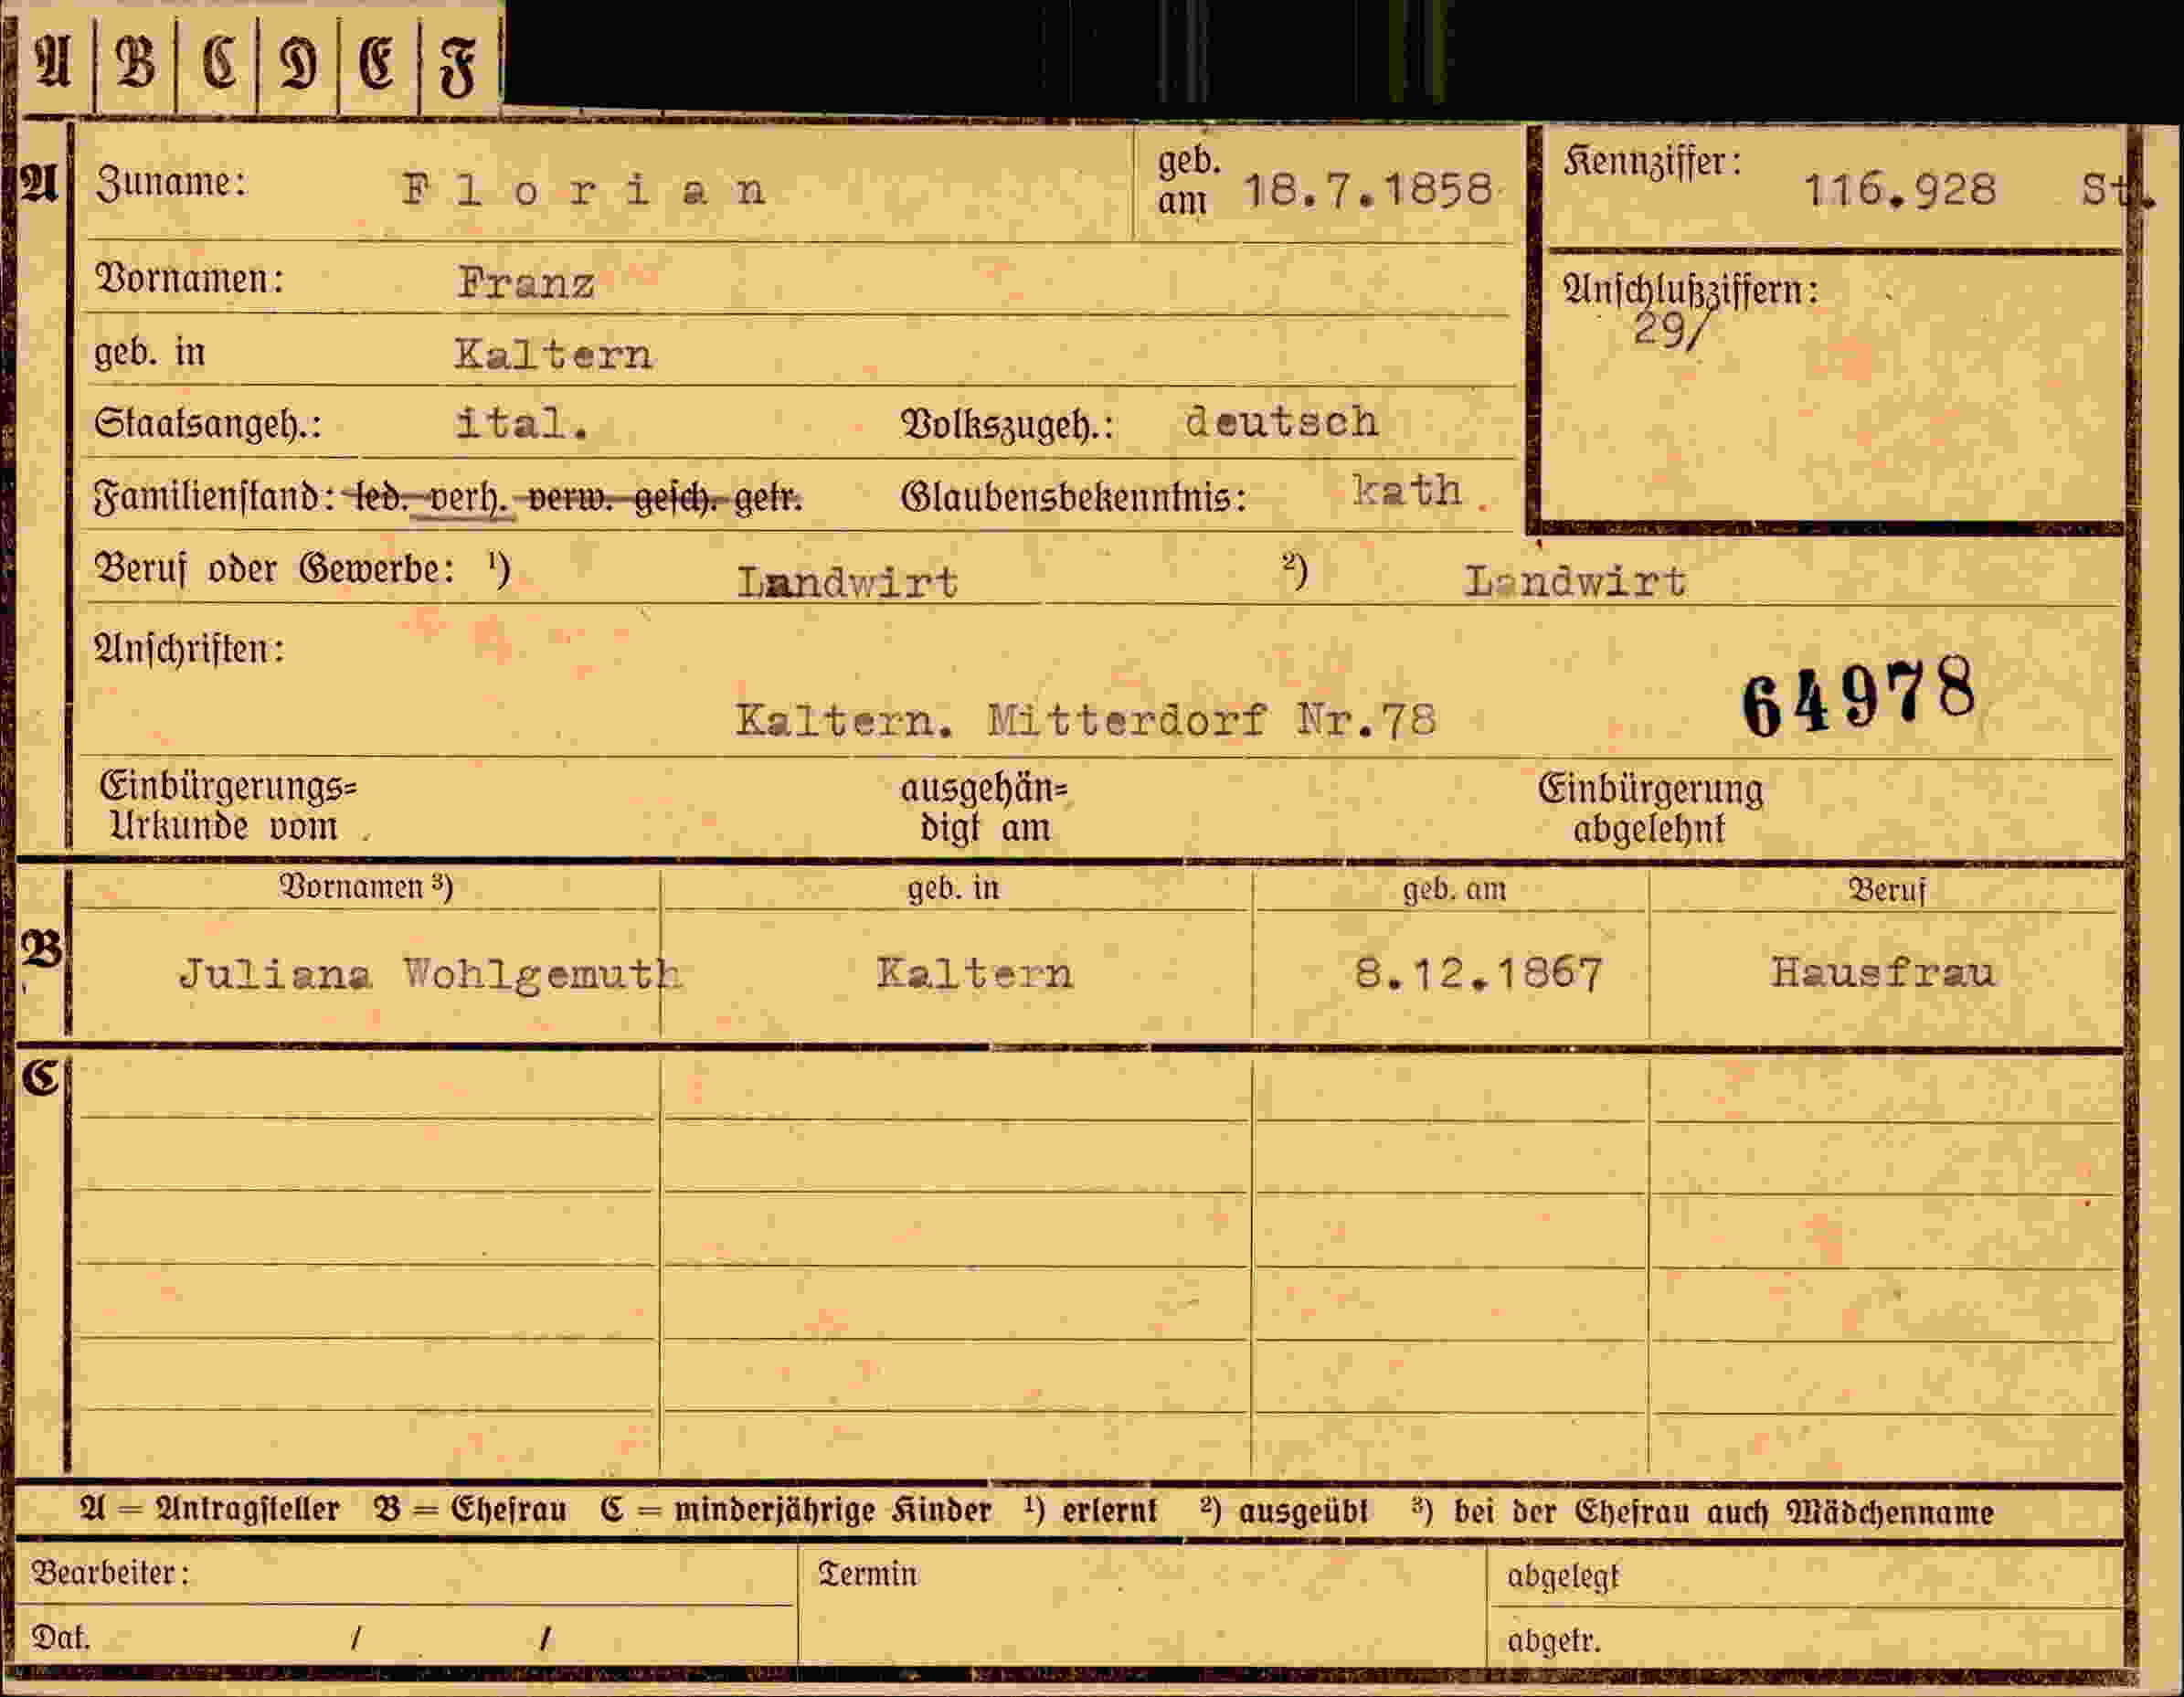 A B C D E F
A Zuname: Florian geb. am 18.7.1858 Kennziffer: 116.928 St.
Vornamen: Franz
Anschlußziffern:
29/
geb. in Kaltern
Staatsangeh.: ital. Volkszugeh.: deutsch
Familienstand: led. verh. verw. gesch. getr. Glaubensbekenntnis: kath.
Beruf oder Gewerbe: ¹) Landwirt ²) Landwirt
Anschriften:
Kaltern. Mitterdorf Nr.78 64978
Einbürgerungs= ausgehän= Einbürgerung
Urkunde vom digt am abgelehnt
Vornamen ³) geb. in geb. am Beruf
B Juliana Wohlgemuth Kaltern 8.12.1867 Hausfrau
C
A = Antragsteller B = Ehefrau C = minderjährige Kinder ¹) erlernt ²) ausgeübt ³) bei der Ehefrau auch Mädchenname
Bearbeiter: Termin abgelegt
Dat. / / abgetr.